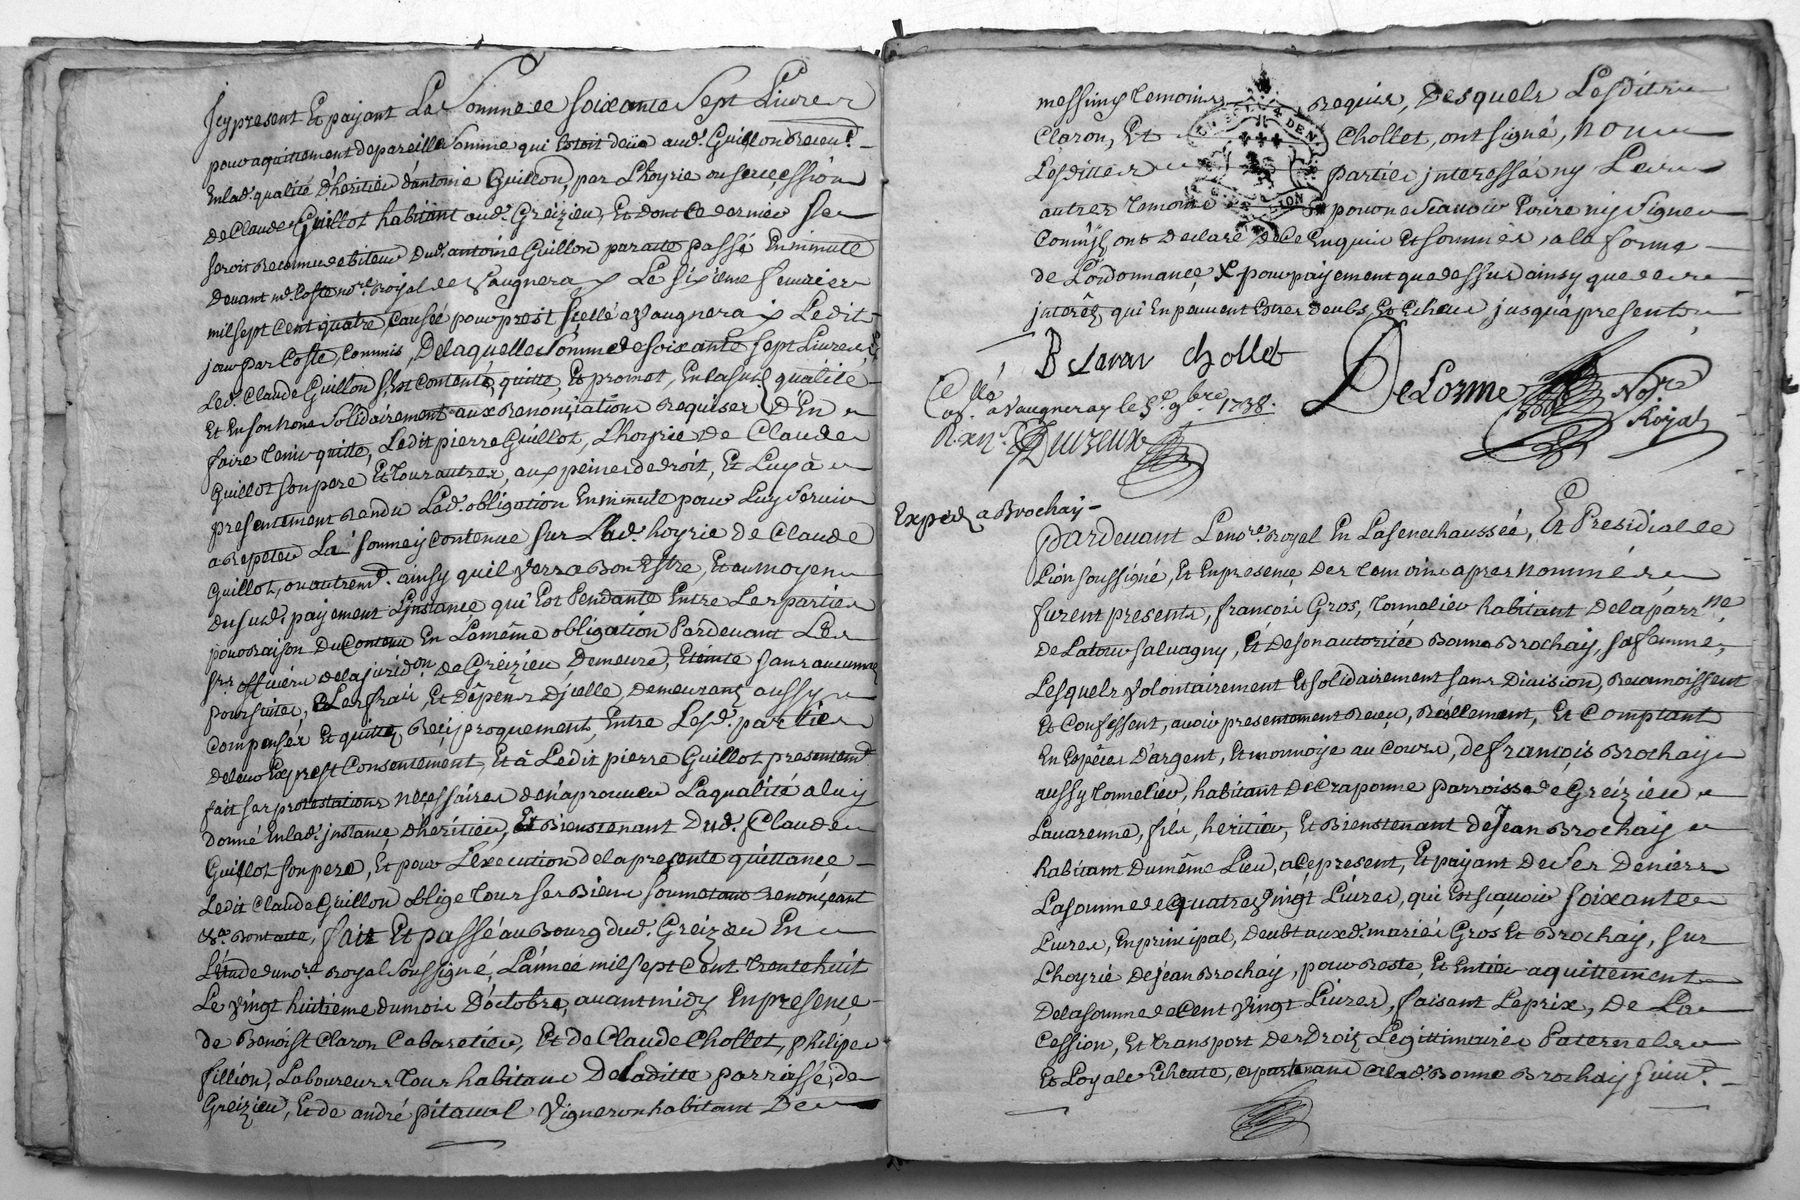 Jcy present Et payant La Somme de soixante Sept Livres
pour aquittement de pareille Somme qui Estoit deüe aud. Guillon Receud.
En lad. qualité d'heritier d'antoine Guillon, par L'hoyrie ou succession
de Claude Guillot habitant aud. Greizieu, Et dont Ce dernier Se
seroit Reconnu debiteur Dud. antoine Guillon par acte passé En minute
Devant me. Coste nore. Royal de Vaugneray Le sixième fevrier
mil sept Cent quatre, Causée pour prest scellé a Vaugneray Ledit
jour par Coste, Commis, De laquelle Somme de soixante sept Livres,
Led. Claude Guillon s'est Contenté, quitte, Et promet, En lasusd. qualité
Et En son nom Solidairement aux Renonciations Requises D'En
faire tenir quitte, Ledit pierre Guillot, L'hoyrie De Claude
Guillot son pere Et tous autres, aux peines de droit, Et Luy à
presentement Rendu Lad. obligation En minute pour Luy Servir
a Repeter La somme y contenue sur Lad. hoyrie de Claude
Guillot, ou autremt. ainsy quil verra Bon Estre, Et au moyen
du susd. payement L'instance qui Est Pendante Entre Les parties
pour Raison Du Contenu En La même obligation Pardevant Les
srs. officiers de la juridon. de Greizieu, Demeure, Eteinte sans aucunne
poursuites, Et Les frais, Et Dépens d'jcelle, demeurans aussy
Compensés Et quittes Reciproquement, Entre Lesd. parties
de leur Exprest Consentement, Et à Ledit pierre Guillot presentemt.
fait ses protestations necessaires de n'aprouver La qualité a luy
donné En lad. jnstance d'heritier, Et Bienstenant Dud. Claude
Guillot son pere, Et pour L'execution de la presente quittance
Ledit Claude Guillon oblige tous ses Biens soumetant Renonceant
&a. Dont acte, fait Et passé au Bourg dud. Greizieu En
L'étude du nore. Royal soussigné, L'année mil sept Cent trente huit
Le vingt huitieme du mois D'octobre, avant midy En presence
de Benoist Claron Cabaretier, Et de Claude Chollet, philipe
fillion, Laboureurs tous habitans De ladite parroisse de
Greizieu, Et de andré pitaval Vigneron habitant De
messimy temoins Requis, Desquels Lesdits
Claron, Et Chollet, ont signé, non
Lesdittes partiés jnteressés ny Les
autres temoins pour ne Scavoir Ecrire ny Signer
Comm'jls ont Declaré de Ce Enquis Et sommés, a la forme
de L'ordonnance, & pour payement que dessus ainsy que des
jnterêts qui En peuvent Estres deubs, Et Echeus jusqu'a present
B Claron Chollet
DeLorme Nore.
Royal
Cellé
a Vaugneray le 5e. 9bre. 1738.
Duizeux
Exped. a Brochay
Pardevant Le nore. Royal En La senechaussée, Et Presidial de
Lion soussigné, Et En presence Des temoins apres nommés
furent presents, françois Gros, tonnelier habitant De la parrne.
De Latour salvagny, Et De son autorité Bonne Brochay, sa femme,
Lesquels volontairement Et solidairement sans Division, Reconnoissent
Et Confessent, avoir presentement Receu, Réellement, Et Comptant
En Espêces D'argent, Et monnoye au Cours, de françois Brochay
aussy tonnelier, habitant De Craponne parroisse de Greizieu
Lavarenne, fils, heritier, Et Bienstenant de Jean Brochay
habitant Du même Lieu, a Ce present, Et payant De ses Deniers
La somme de quatre vingt Livres, qui Est scavoir soixante
Livres, En principal, deubt auxd. mariés Gros Et Brochay, sur
L'hoyrie De jean Brochay, pour Reste, Et Entier aquittement
De la somme de Cent Vingt Livres, faisant Le prix, De La
Cession, Et transport Des Droits Légittimaires Paternels
Et Loyale Echeute, apartenans a Lad. Bonne Brochay suivt.